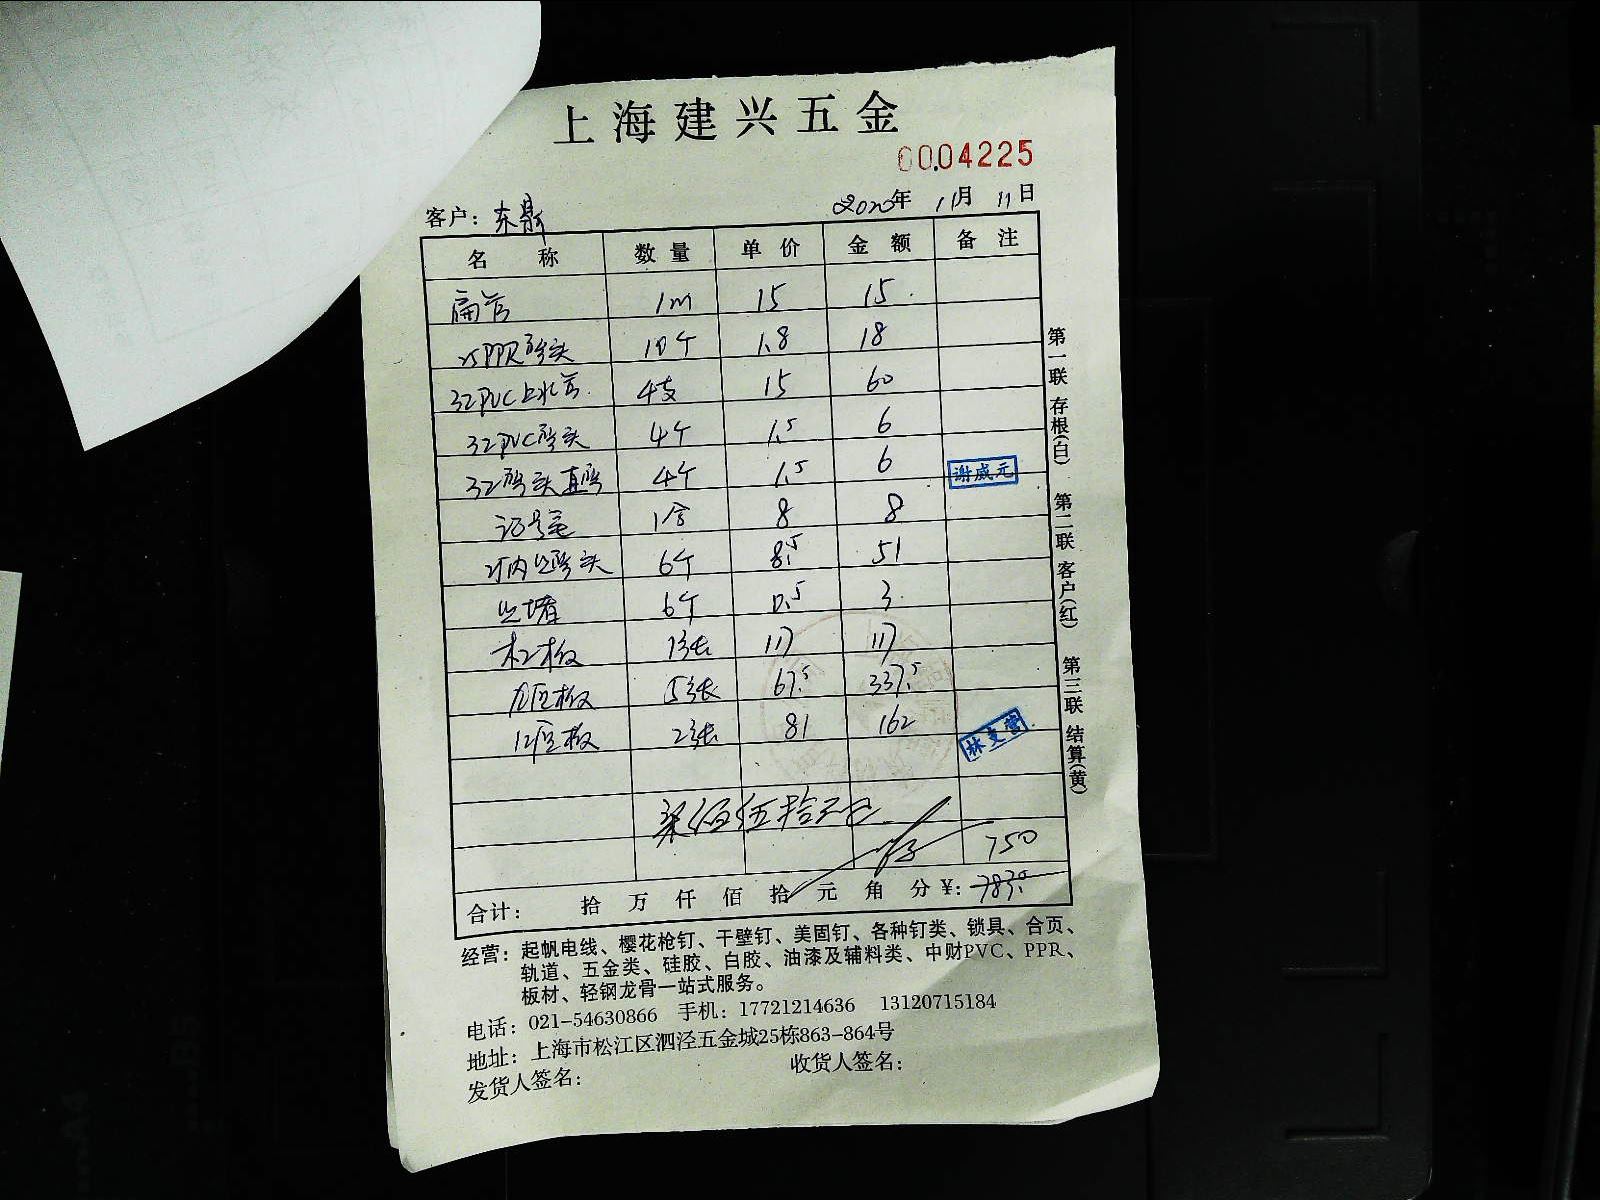 上海建兴五金
0004225
客户: 东鼎 2020年 11月 11日
名称 数量 单价 金额 备注
扁管 1m 15 15
25PPR弯头 10个 1.8 18
32PVC上水管 4支 15 60
32PVC弯头 4个 1.5 6
32弯头直弯 4个 1.5 6
谢威元
记号笔 1盒 8 8
寸内丝弯头 6个 8.5 51
丝堵 6个 0.5 3
木工板 1张 117 117
九厘板 5张 67.5 337.5
12厘板 2张 81 162
柒佰伍拾元正
750
合计: 拾 万 仟 佰 拾 元 角 分 ¥: 783.5
第一联 存根(白) 第二联 客户(红) 第三联 结算(黄)
经营: 起帆电线、樱花枪钉、干壁钉、美固钉、各种钉类、锁具、合页、
轨道、五金类、硅胶、白胶、油漆及辅料类、中财PVC、PPR、
板材、轻钢龙骨一站式服务。
电话: 021-54630866 手机: 17721214636 13120715184
地址: 上海市松江区泗泾五金城25栋863-864号
发货人签名: 收货人签名: